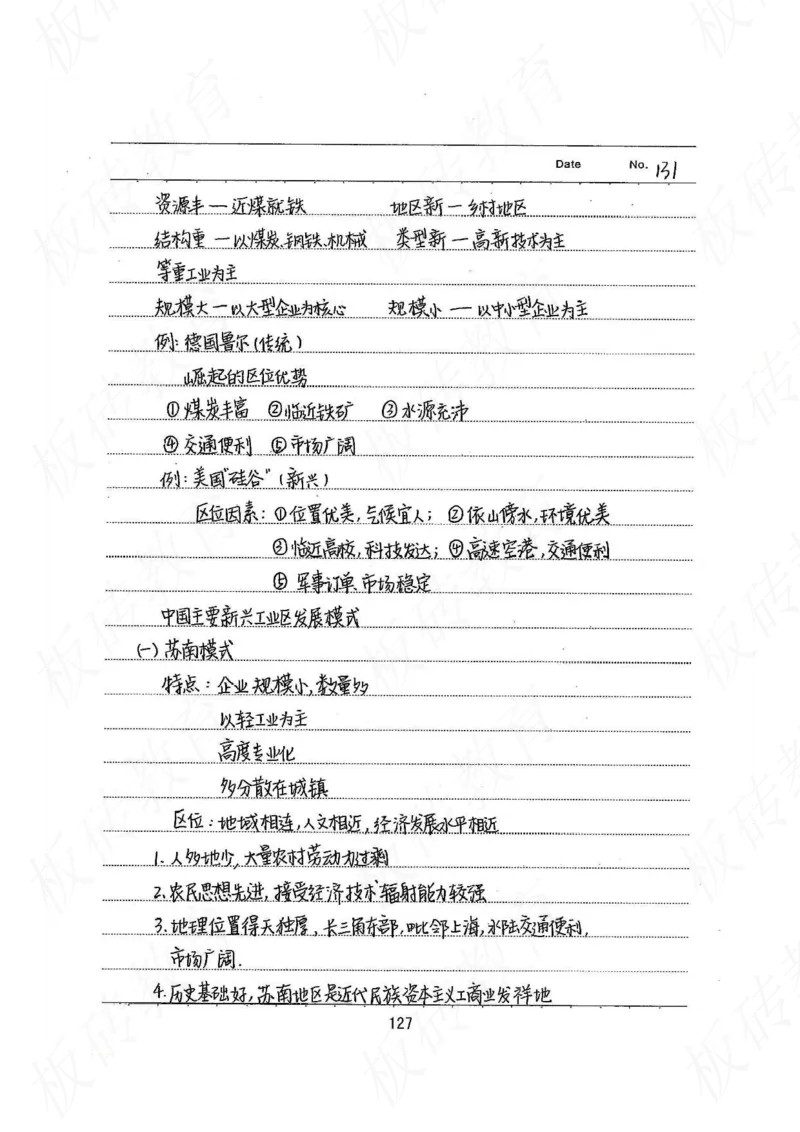 Date No. 131
资源丰 — 近煤就铁 地区新 — 乡村地区
结构重 — 以煤炭、钢铁、机械 类型新 — 高新技术为主
等重工业为主
规模大 — 以大型企业为核心 规模小 — 以中小型企业为主
例: 德国鲁尔(传统)
崛起的区位优势
① 煤炭丰富 ②临近铁矿 ③水源充沛
④ 交通便利 ⑤ 市场广阔
例: 美国"硅谷" (新兴)
区位因素: ①位置优美, 气候宜人; ②依山傍水, 环境优美
③临近高校, 科技发达; ④高速空港, 交通便利
⑤ 军事订单、市场稳定
中国主要新兴工业区发展模式
(一) 苏南模式
特点: 企业规模小, 数量多
以轻工业为主
高度专业化
多分散在城镇
区位: 地域相连, 人文相近, 经济发展水平相近
1. 人多地少, 大量农村劳动力过剩
2. 农民思想先进, 接受经济技术辐射能力较强
3. 地理位置得天独厚, 长三角东部, 毗邻上海, 水陆交通便利,
市场广阔.
4. 历史基础好, 苏南地区是近代民族资本主义工商业发祥地
127
板砖教育